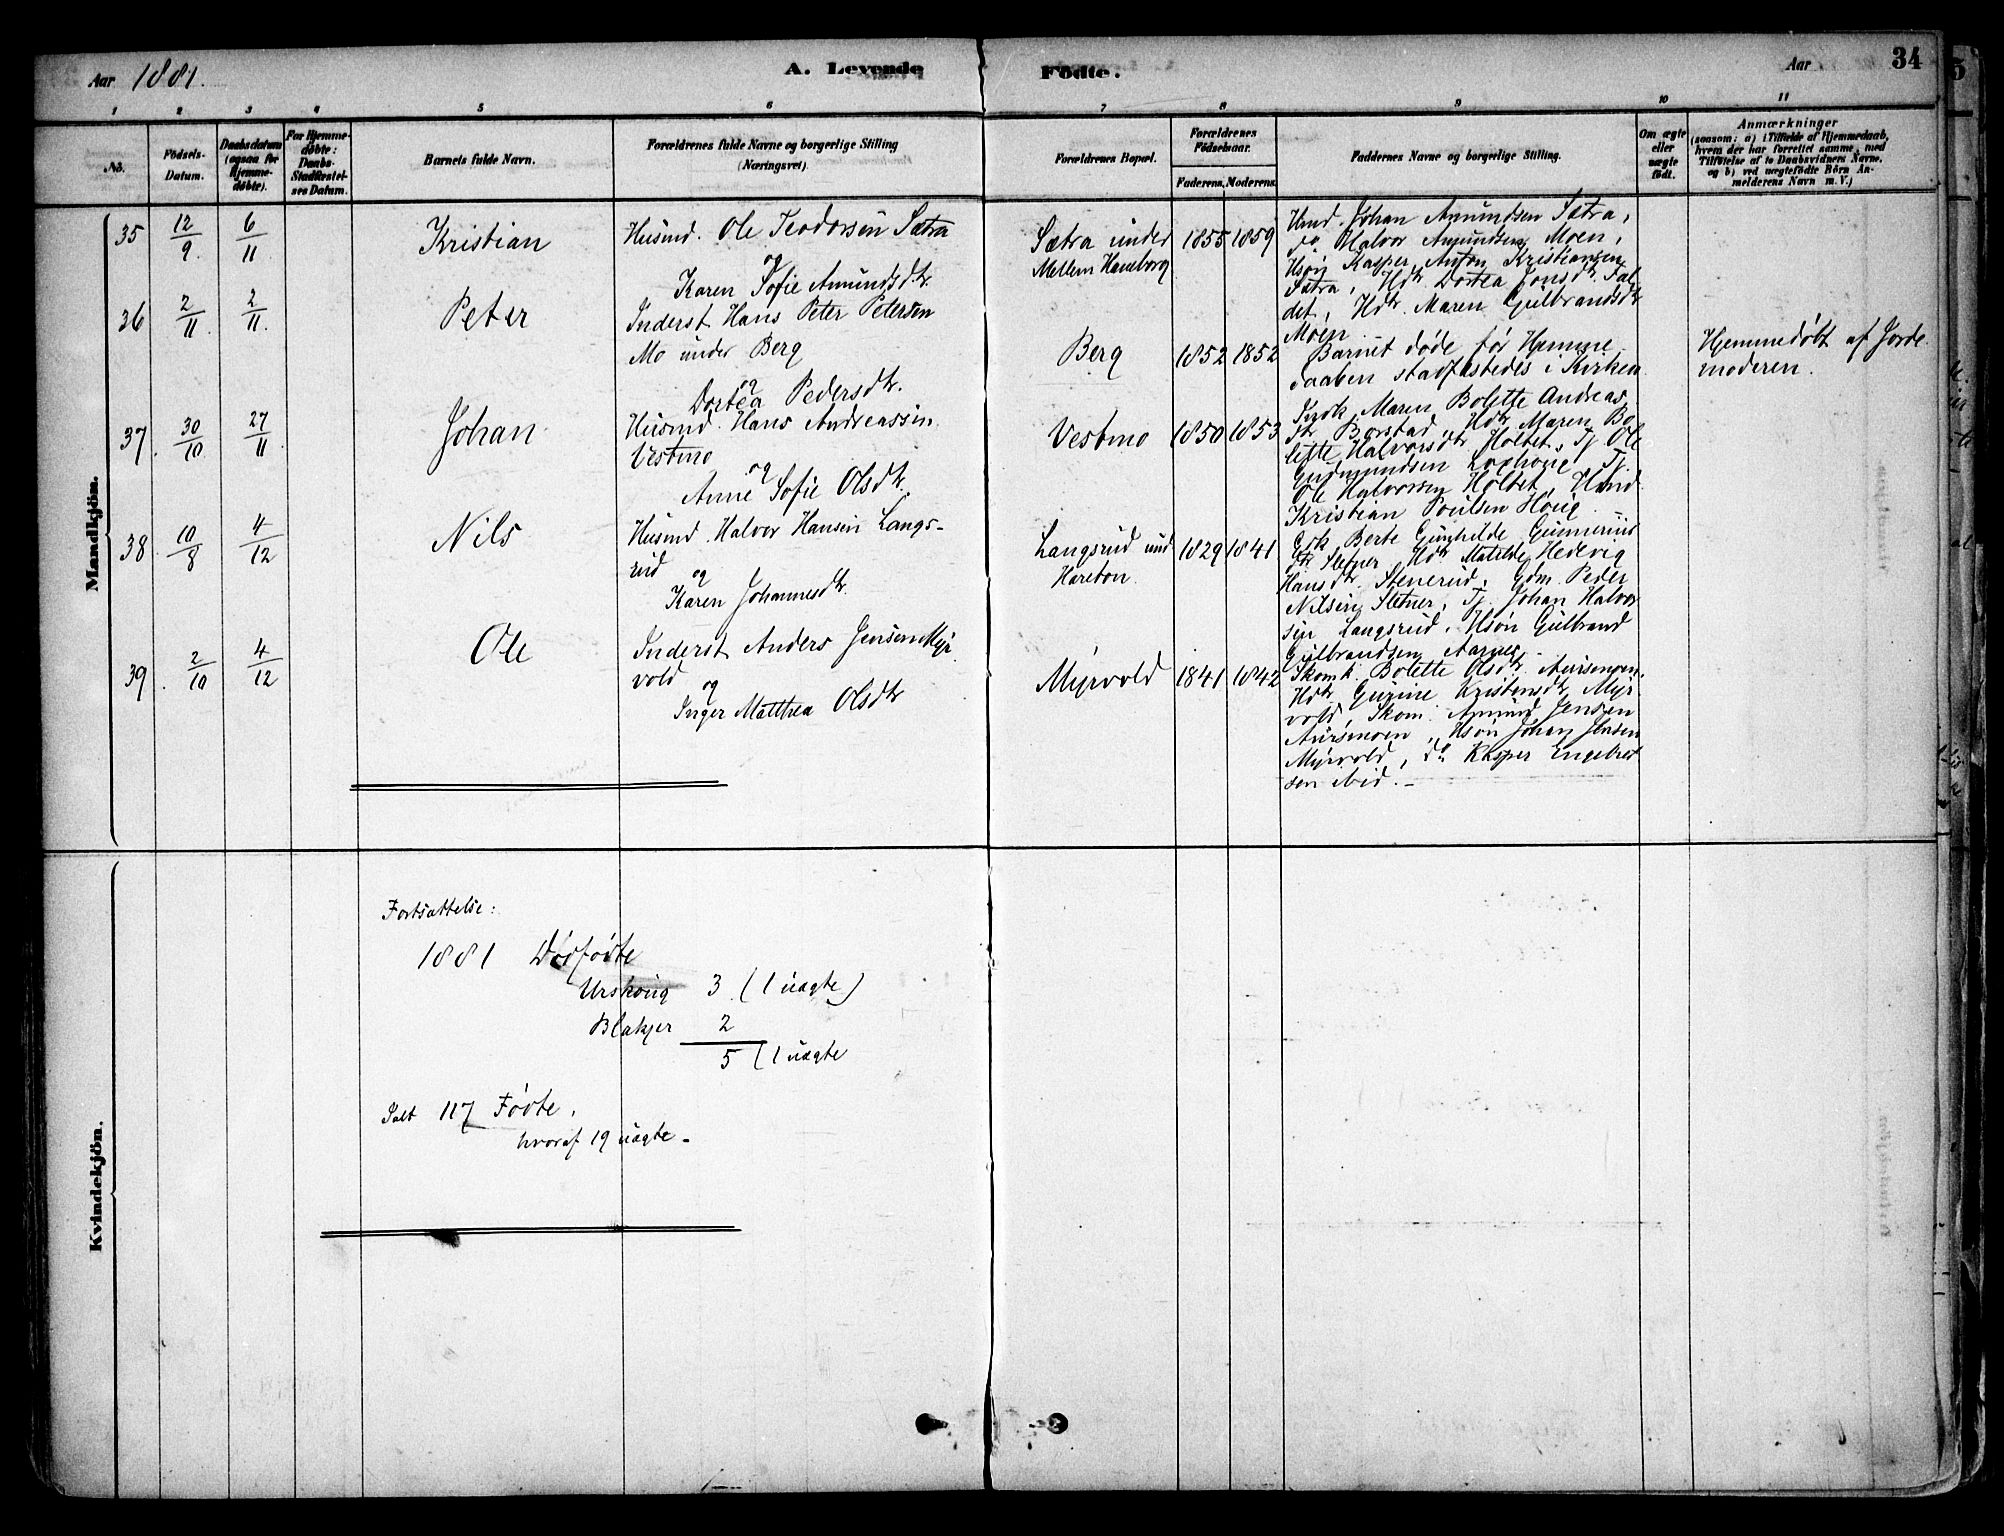 Aar 1881.
A. Levende Födte.
Aar
34
1 2 3 4 5 6 7 8 9 10 11
No.
Födsels-Datum.
Daabsdatum (ogsaa for Hjemmedöbte).
For Hjemmedöbte: Daabs-Stadfæstelses Datum.
Barnets fulde Navn.
Forældrenes fulde Navne og borgerlige Stilling (Næringsvei).
Forældrenes Bopæl.
Forældrenes Födselsaar.
Faderens. Moderens.
Faddernes Navne og borgerlige Stilling.
Om ægte eller uægte födt.
Anmærkninger
(saasom: a) i Tilfælde af Hjemmedaab, hvem der har forrettet samme, med Tilföielse af to Daabsvidners Navne, og b) ved uægtefödte Börn Anmelderens Navn m. V.)
Mandkjön.
35 12/9 6/11 Kristian
Husmd. Ole Teodorsen Sætra
og
Karen Sofie Amundsdtr.
Sætra under
Mellem Haneborg
1855 1859
Hmd. Johan Amundsen Sætra,
do Halvor Amundsen Moen,
Hsøn Kasper Anton Kristiansen
Sætra, Hdtr Dortea Jonsdtr. Fal
det, Hdtr. Maren Gulbrandsdtr
Moen
36 2/11 2/11 Peter
Inderst Hans Peter Petersen
Mo under Berg
og
Dortea Pedersdtr.
Berg 1852 1852
Barnet døde før Hjemme
daaben stadfæstedes i Kirken
Hjemmedøbt af Jorde
moderen.
37 30/10 27/11 Johan
Husmd. Hans Andreassen
Vestmo
og
Anne Sofie Olsdtr.
Vestmo 1850 1853
Maren Bolette Andreas
dtr Borstad, Hdtr Maren Bo
lette Halvorsdtr Holtet, Tj Ole
Gudmundsen Tj.
Ole Halvorsen Holtet, Hmd
Kristian Poulsen Høiie
38 10/8 4/12 Nils
Husmd. Halvor Hansen Langs-
rud
og
Karen Johannesdtr.
Langsrud und
Hareton.
1829 1841
Gsk Berte Gunhilde Gunnerius
dtr Sletner, Hdtr Matilde Hedevig
Hansdtr. Stenerud, Gdm. Peder
Nilsen Sletner, Tj. Johan Halvor
sen Langsrud, Hsøn Gulbrand
Gulbrandsen Aarnes
39 2/10 4/12 Ole
Inderst Anders Jensen Myr
vold
og
Inger Matthea Olsdtr
Myrvold 1841 1842
Skomk. Bolette Olsdtr. Aursmoen,
Hdtr Gurine Kristensdtr Myr
vold, Skom. Amund Jensen
Aursmoen, Hsøn Johan Jensen
Myrvold, do Kasper Engebret
sen ibid. -
Kvindekjön.
Fortsættelse:
1881 Dødfødte
Urskoug 3 (1 uægte)
Blakjer 2
5 (1 uægte
Ialt 117 Fødte,
hvoraf 19 uægte -